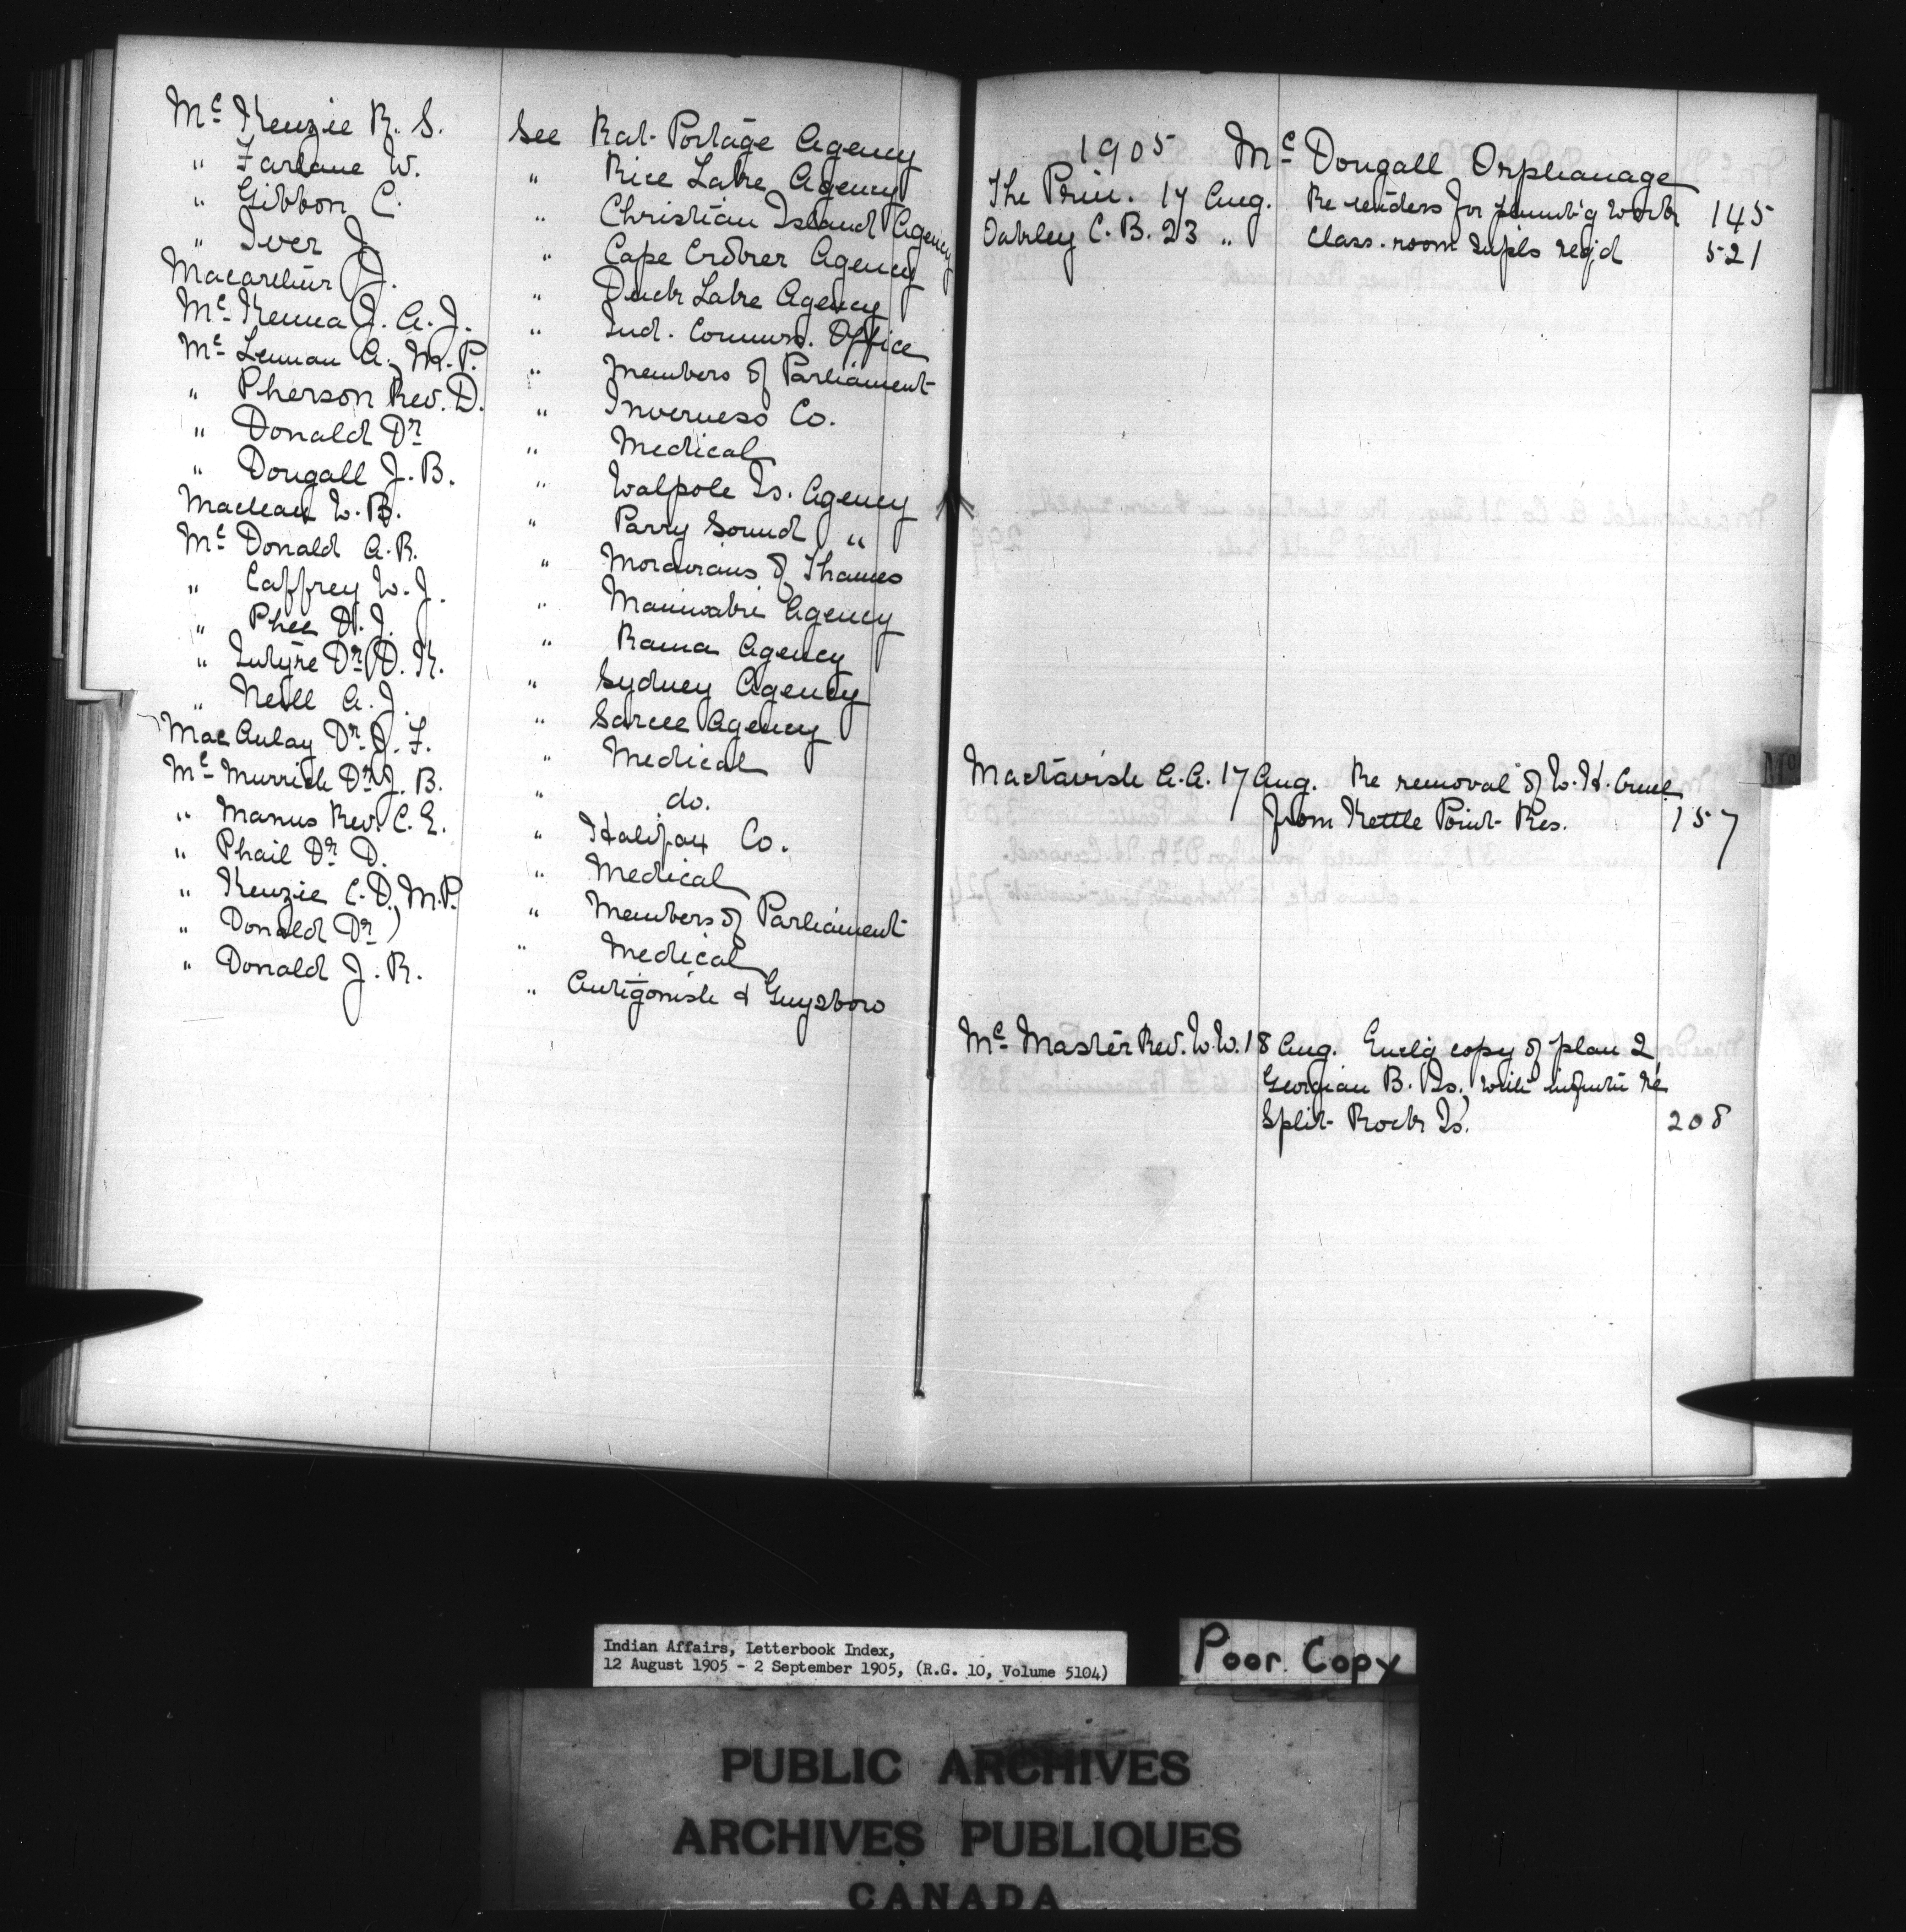 Mc Kenzie R. S. See Rat Portage Agency
" Farlane W. " Rice Lake Agency
" Gibbon C. " Christian Island Agency
" Iver J. " Cape Croker Agency
Macarthur J. " Duck Lake Agency
Mc Kenna J. A. J. " Ind. Commrs. Office
Mc Lennan A., M.P. " Members of Parliament
" Pherson Rev. D. " Inverness Co.
" Donald Dr " Medical
" Dougall J. B. " Walpole Is. Agency
Maclean W. B. " Parry Sound "
Mc Donald A. R. " Moravians of Thames
" Caffrey W. J. " Maniwaki Agency
" Phee D. J. " Rama Agency
" Intyre Dr D. K. " Sydney Agency
" Neill A. J. " Sarcee Agency
Mac Aulay Dr. J. F. " Medical
Mc Murrich Dr J. B. " do.
" Manus Rev. C. E. " Halifax Co.
" Phail Dr D. " Medical
" Kenzie C. D., M.P. " Members of Parliament
" Donald Dr " Medical
" Donald J. R. " Antigonish & Guysboro
1905 Mc Dougall Orphanage
The Prin. 17 Aug. Re tenders for work 145
Oakley C. B. 23 " Class. room supls reqd 521
Mactavish A. A. 17 Aug. Re removal of W. H.
from Kettle Point Res. 157
Mc Master Rev. W. W. 18 Aug. Enclg copy of plan
Georgian B. Is., with re
Split Rock Is. 208
Mc
Indian Affairs, Letterbook Index,
12 August 1905 - 2 September 1905, (R.G. 10, Volume 5104)
Poor Copy
PUBLIC ARCHIVES
ARCHIVES PUBLIQUES
CANADA